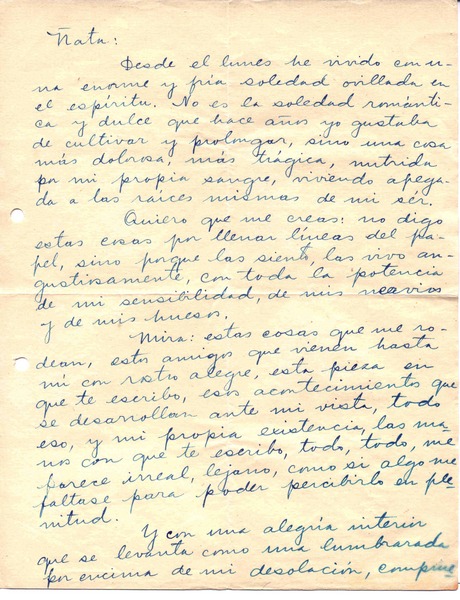 Ñata:
Desde el lunes he vivido con u-
na enorme y fría soledad ovillada en
el espíritu. No es la soledad románti-
ca y dulce que hace años yo gustaba
de cultivar y prolongar, sino una cosa
más dolorosa, más trágica, nutrida
por mi propia sangre, viviendo apega-
da a las raíces mismas de mi sér.
Quiero que me creas: no digo
estas cosas por llenar líneas del pa-
pel, sino porque las siento, las vivo an-
gustiosamente, con toda la potencia
de mi sensibilidad, de mis nervios
y de mis huesos.
Mira: estas cosas que me ro-
dean, estos amigos que vienen hasta
mi con rostro alegre, esta pieza en
que te escribo, esos acontecimientos que
se desarrollan ante mi vista, todo
eso, y mi propia existencia, las ma-
nos con que te escribo, todo, todo, me
parece irreal, lejano, como si algo me
faltase para poder percibirlo en ple-
nitud.
Y con una alegría interior
que se levanta como una lumbrarada
por encima de mi desolación, compruе-